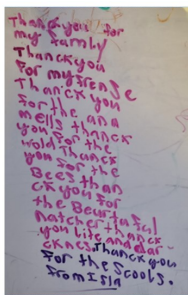 Thanck you for
my family
Thanck you
for my frense
Thanck you
for the ana
mells thanck
you for the
wold Thanck
you for the
Bees than
ck you for
the Beurtuful
natcher thanck
you lite and dar
cknes. Thanck you
for the scools.
from Isla